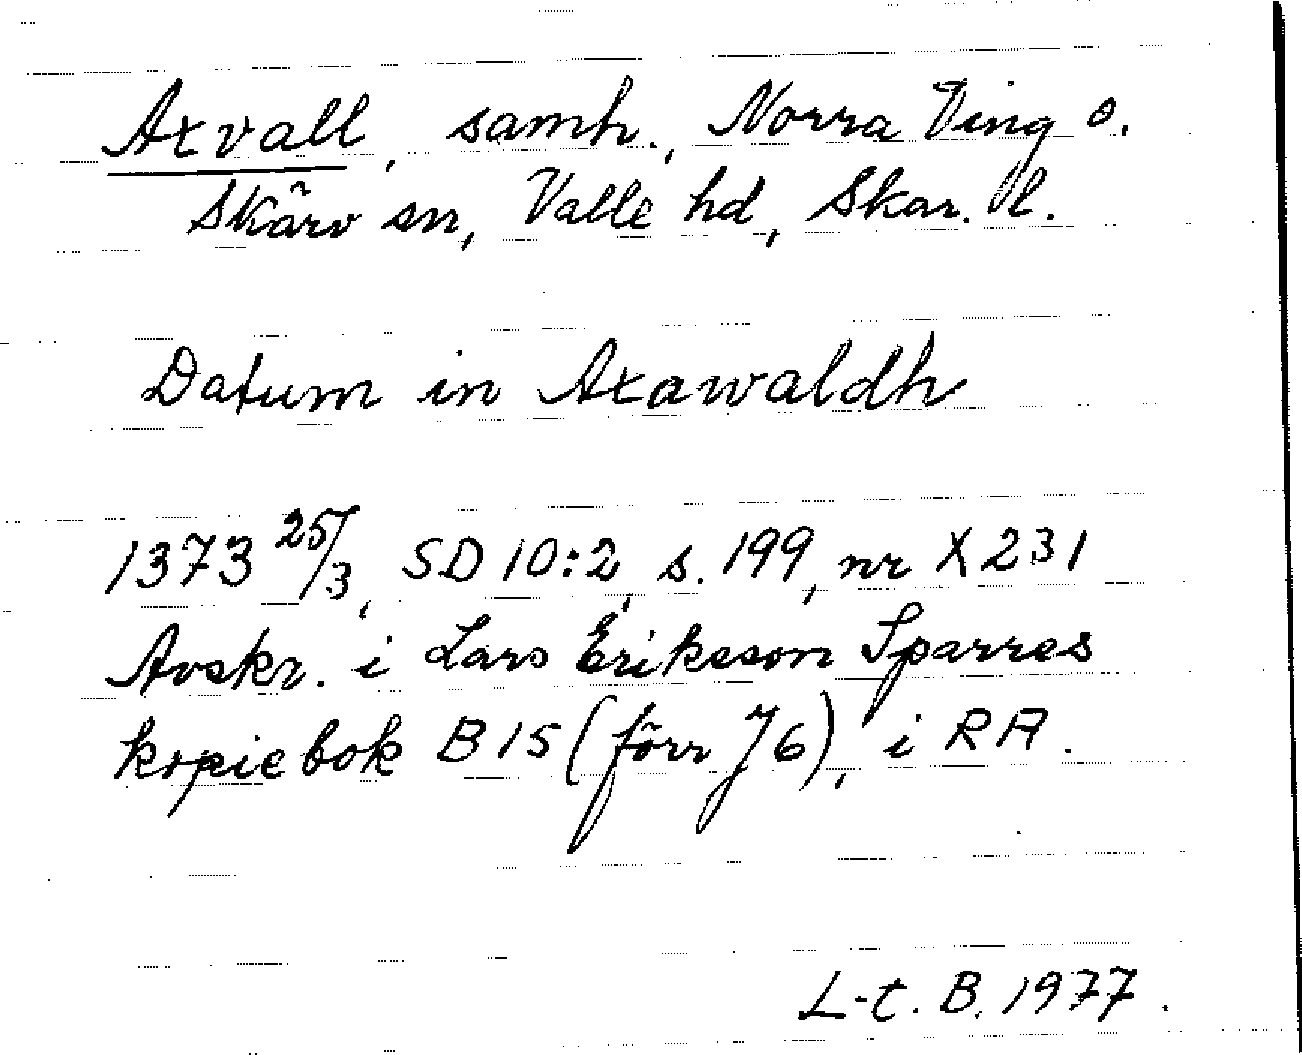 Axvall, samh., Norra Ving o.
Skärv sn, Valle hd, Skar. l.
Datum in Axawaldh
1373 25/3, SD 10:2, s. 199, nr X231
Avskr. i Lars Erikeson Sparres
kopiebok B 15 (förr J 6), i RA.
L-t. B. 1977.